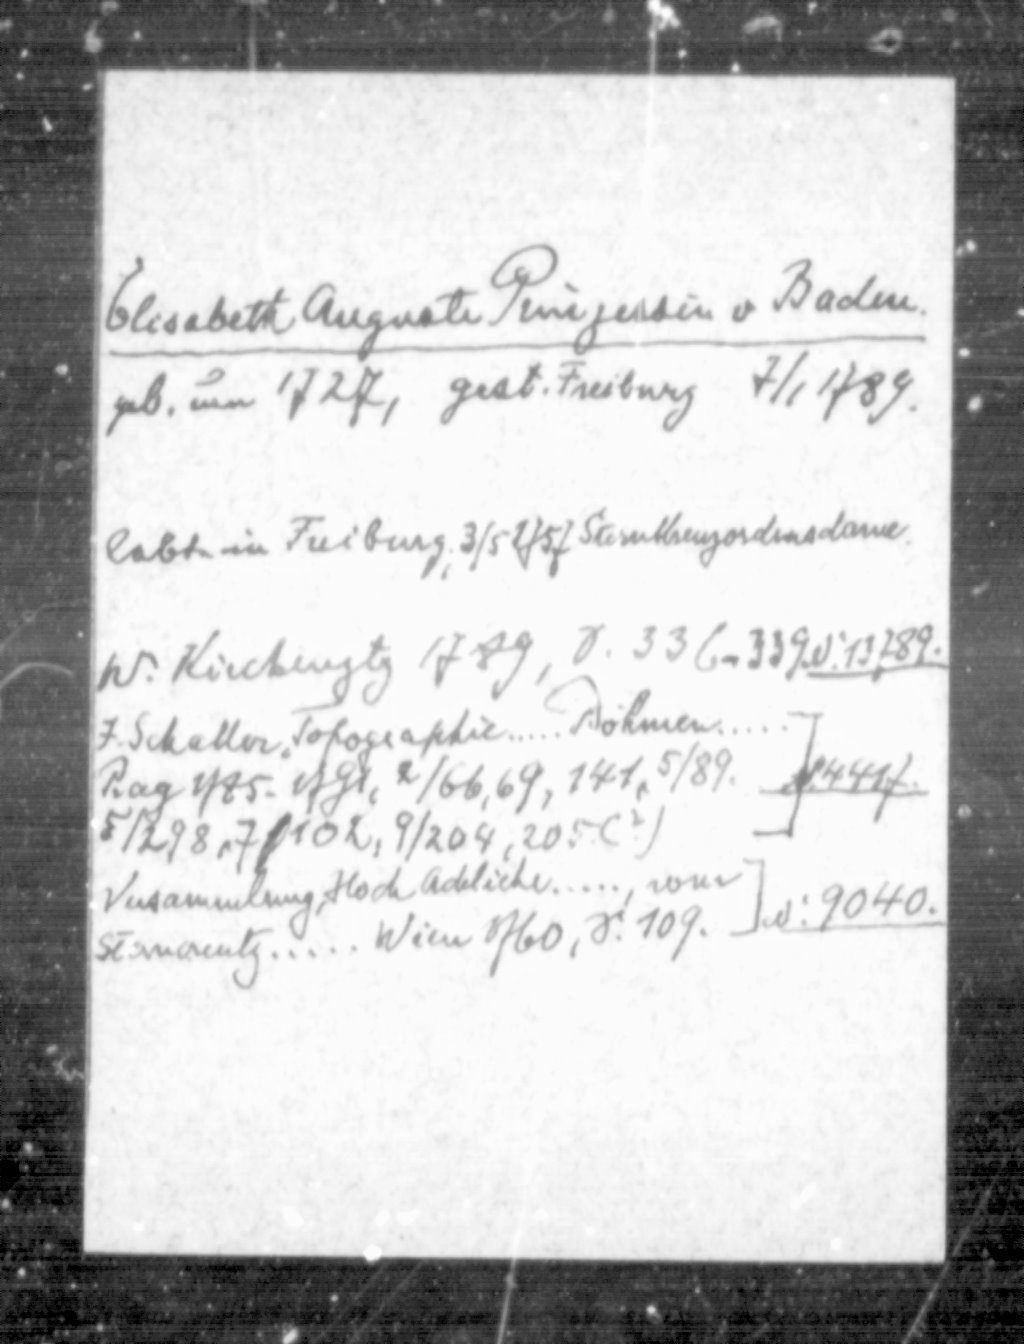 Elisabeth Auguste Prinzessin v Baden.
geb. um 1727, gest. Freiburg 7/1 1789.
lebte in Freiburg, 3/5 1757 Sternkreuzordensdame.
W. Kirchenztg 1789, S. 336-339. N: 13,289.
J. Schaller, Topographie..... Böhmen.....
Prag 1785-1791, 2/66, 69, 141, 5/89. 4417.
5/298, 7/102, 9/204, 205 (?)
Versammlung, Hoch Adeliche....., vom
Sterncreutz..... Wien 1760, S. 109. N: 9040.